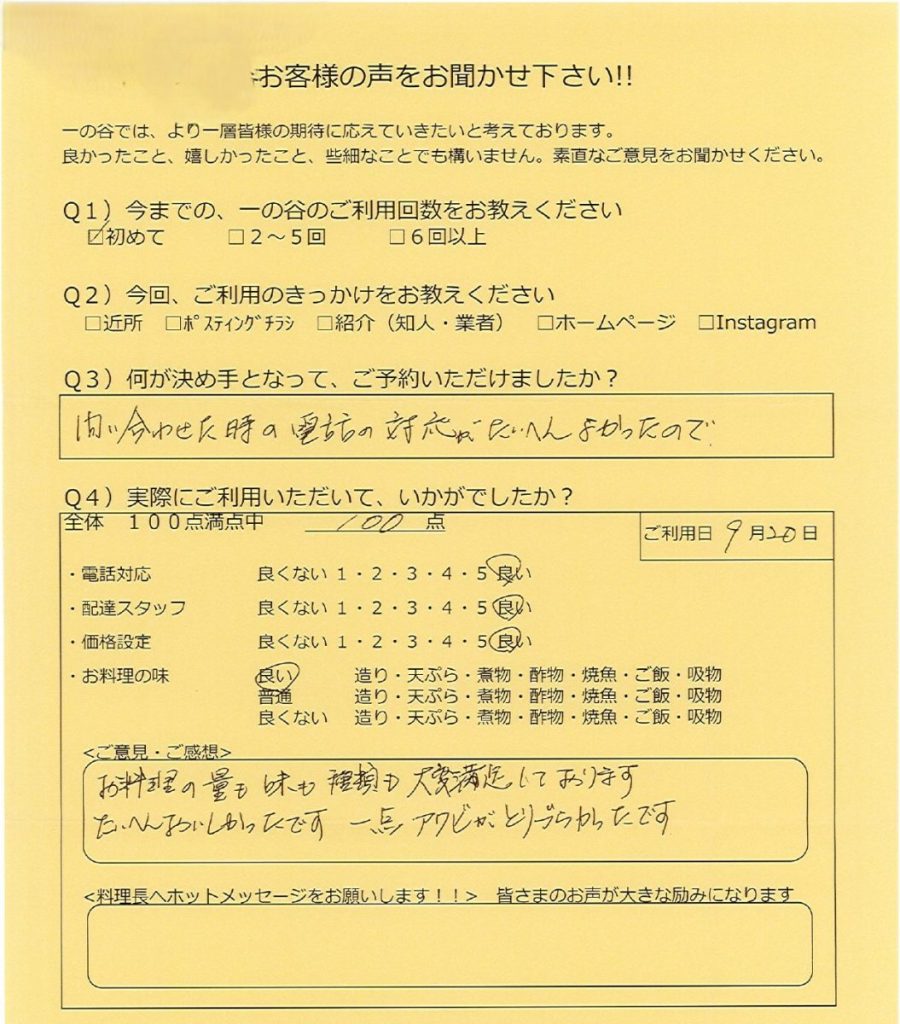 お客様の声をお聞かせ下さい!!
一の谷では、より一層皆様の期待に応えていきたいと考えております。
良かったこと、嬉しかったこと、些細なことでも構いません。素直なご意見をお聞かせください。
Q1）今までの、一の谷のご利用回数をお教えください
☑初めて □2～5回 □6回以上
Q2）今回、ご利用のきっかけをお教えください
□近所 □ﾎﾟｽﾃｨﾝｸﾞﾁﾗｼ □紹介（知人・業者） □ホームページ □Instagram
Q3）何が決め手となって、ご予約いただけましたか？
問い合わせた時の電話の対応がたいへんよかったので
Q4）実際にご利用いただいて、いかがでしたか？
全体 100点満点中 100 点
ご利用日 9月20日
・電話対応 良くない 1・2・3・4・5 良い
・配達スタッフ 良くない 1・2・3・4・5 良い
・価格設定 良くない 1・2・3・4・5 良い
・お料理の味 良い 造り・天ぷら・煮物・酢物・焼魚・ご飯・吸物
普通 造り・天ぷら・煮物・酢物・焼魚・ご飯・吸物
良くない 造り・天ぷら・煮物・酢物・焼魚・ご飯・吸物
<ご意見・ご感想>
お料理の量も味も種類も大変満足しております
たいへんおいしかったです 一点アワビがとりづらかったです
<料理長へホットメッセージをお願いします！！> 皆さまのお声が大きな励みになります